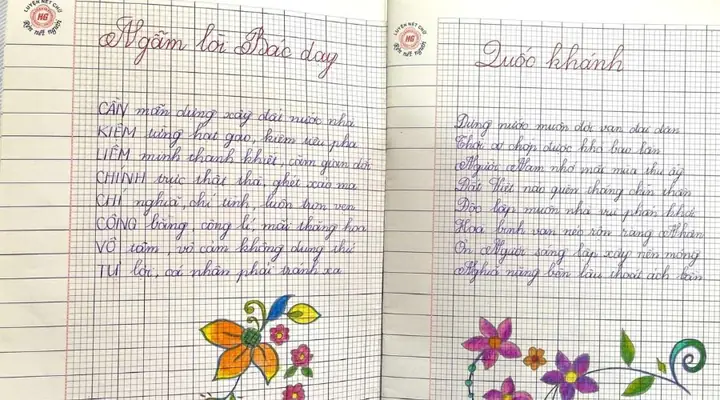 LUYỆN NÉT CHỮ
HG
Rèn nết người
Ngẫm lời Bác dạy
CẦN mẫn dựng xây đất nước nhà
KIỆM từng hạt gạo, kiệm xêu pha
LIÊM minh thanh khiết, căm gian dối
CHÍNH trực thật thà, ghét xảo ma
CHÍ nghĩa, chí tình, luôn trọn vẹn
CÔNG bằng, công lí, mãi thăng hoa
VÔ tâm, vô cảm không dung thứ
TƯ lợi, cá nhân phải tránh xa
LUYỆN NÉT CHỮ
HG
Rèn nết người
Quốc khánh
Dựng nước muôn đời vạn dại dân
Thời cơ chớp được khó bao lần
Người Nam nhớ mãi mùa thu ấy
Đất Việt nào quên tháng chín thần
Độc lập muôn nhà vui phấn khởi
Hòa bình vạn nẻo rộn ràng
Ơn Người sáng lập xây nền móng
Nghĩa nặng bền lâu thoát ách